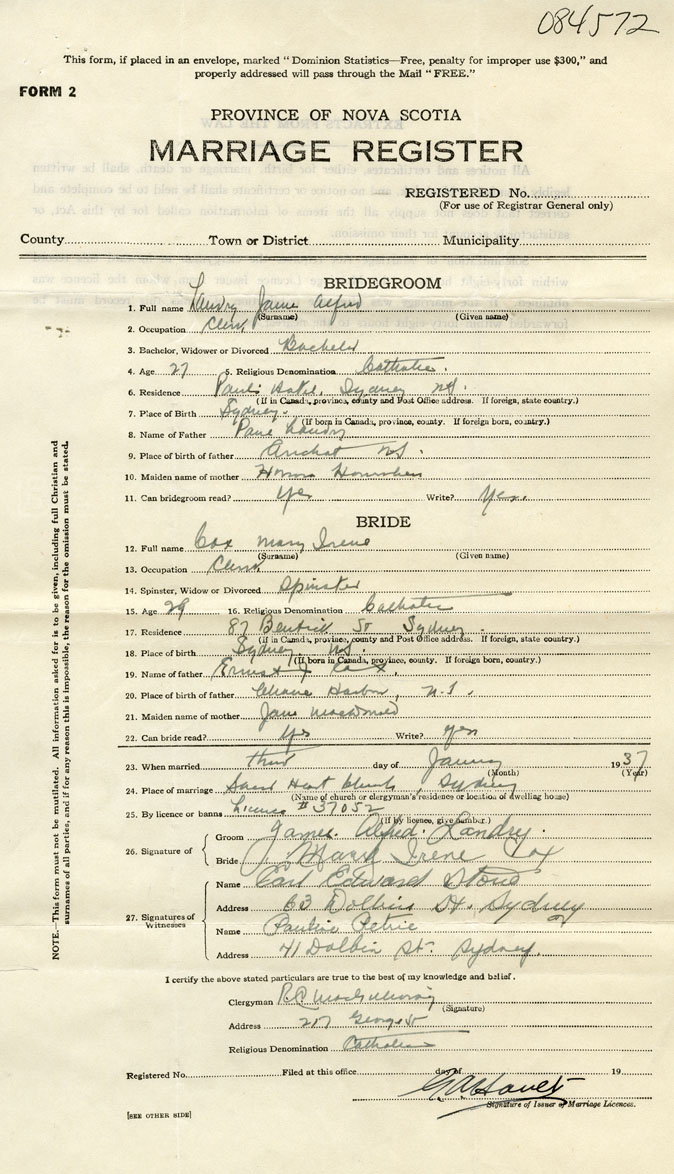 084572
This form, if placed in an envelope, marked "Dominion Statistics—Free, penalty for improper use $300," and
properly addressed will pass through the Mail "FREE."
FORM 2
PROVINCE OF NOVA SCOTIA
MARRIAGE REGISTER
REGISTERED No.
(For use of Registrar General only)
County Town or District Municipality
BRIDEGROOM
1. Full name Landry James Alfred
(Surname) (Given name)
2. Occupation Clerk
3. Bachelor, Widower or Divorced Bachelor
4. Age 27 5. Religious Denomination Catholic.
6. Residence Hotel, Sydney NS.
(If in Canada, province, county and Post Office address. If foreign, state country.)
7. Place of Birth Sydney.
(If born in Canada, province, county. If foreign born, country.)
8. Name of Father Landry
9. Place of birth of father Arichat NS.
10. Maiden name of mother
11. Can bridegroom read? Yes Write? Yes.
BRIDE
12. Full name Cox Mary Irene
(Surname) (Given name)
13. Occupation Clerk
14. Spinster, Widow or Divorced Spinster
15. Age 29 16. Religious Denomination Catholic
17. Residence 87 St Sydney
(If in Canada, province, county and Post Office address. If foreign, state country.)
18. Place of birth Sydney NS.
(If born in Canada, province, county. If foreign born, country.)
19. Name of father Cox
20. Place of birth of father Harbor, N.S.
21. Maiden name of mother Jane MacDonald
22. Can bride read? Yes Write? Yes
23. When married third day of January 1937
(Month) (Year)
24. Place of marriage Sacred Heart Church, Sydney
(Name of church or clergyman's residence or location of dwelling house)
25. By licence or banns Licence #37052
(If by licence, give number.)
26. Signature of
Groom James Alfred Landry.
Bride Mary Irene Cox
27. Signatures of Witnesses
Name Earl Edward
Address 63 Dolbin St. Sydney
Name Pauline Petrie
Address 41 Dolbin St. Sydney.
I certify the above stated particulars are true to the best of my knowledge and belief.
Clergyman
(Signature)
Address George St
Religious Denomination Catholic
Registered No. Filed at this office day of 19
Signature of Issuer of Marriage Licences.
[SEE OTHER SIDE]
NOTE.—This form must not be mutilated. All information asked for is to be given, including full Christian and
surnames of all parties, and if for any reason this is impossible, the reason for the omission must be stated.